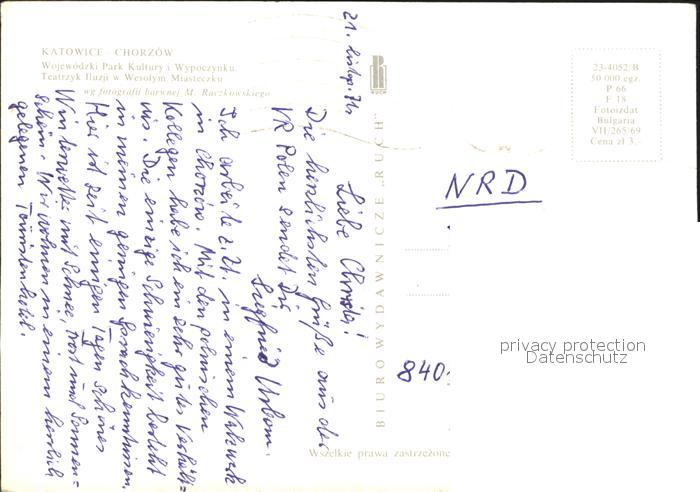 KATOWICE - CHORZÓW
Wojewódzki Park Kultury i Wypoczynku.
Teatrzyk Iluzji w Wesołym Miasteczku
wg fotografii barwnej M. Raczkowskiego
21. listop. 71.
Liebe Christa!
Die herzlichsten Grüße aus der
VR Polen sendet Dir
Siegfried Urban.
Ich arbeite z. Zt. in einem Walzwerk
in Chorzow. Mit den polnischen
Kollegen habe ich ein sehr gutes Verhält=
nis. Die einzige Schwierigkeit besteht
in meinen geringen Sprachkenntnissen.
Hier ist seit einigen Tagen schönes
Winterwetter mit Schnee, Frost und Sonnen=
schein. Wir wohnen in einem herrlich
gelegenen Touristenhotel.
BIURO WYDAWNICZE „RUCH"
23-4052/B
50 000 egz.
P 66
F 18
Fotoizdat
Bulgaria
VII/265/69
Cena zł 3,
NRD
840
privacy protection
Datenschutz
Wszelkie prawa zastrzeżone